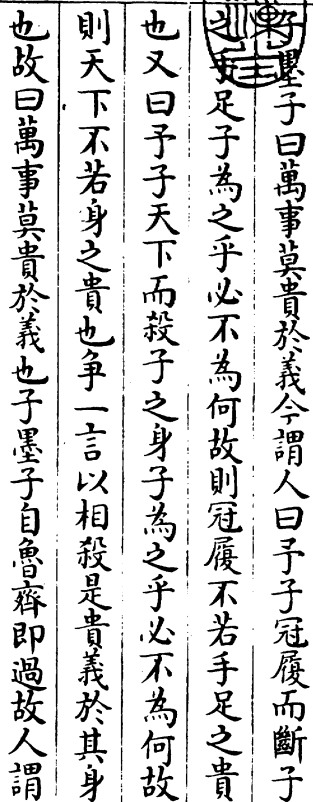 子墨子曰萬事莫貴於義今謂人曰予子冠履而斷子
之手足子為之乎必不為何故則冠履不若手足之貴
也又曰予子天下而殺子之身子為之乎必不為何故
則天下不若身之貴也爭一言以相殺是貴義於其身
也故曰萬事莫貴於義也子墨子自魯齊即過故人謂